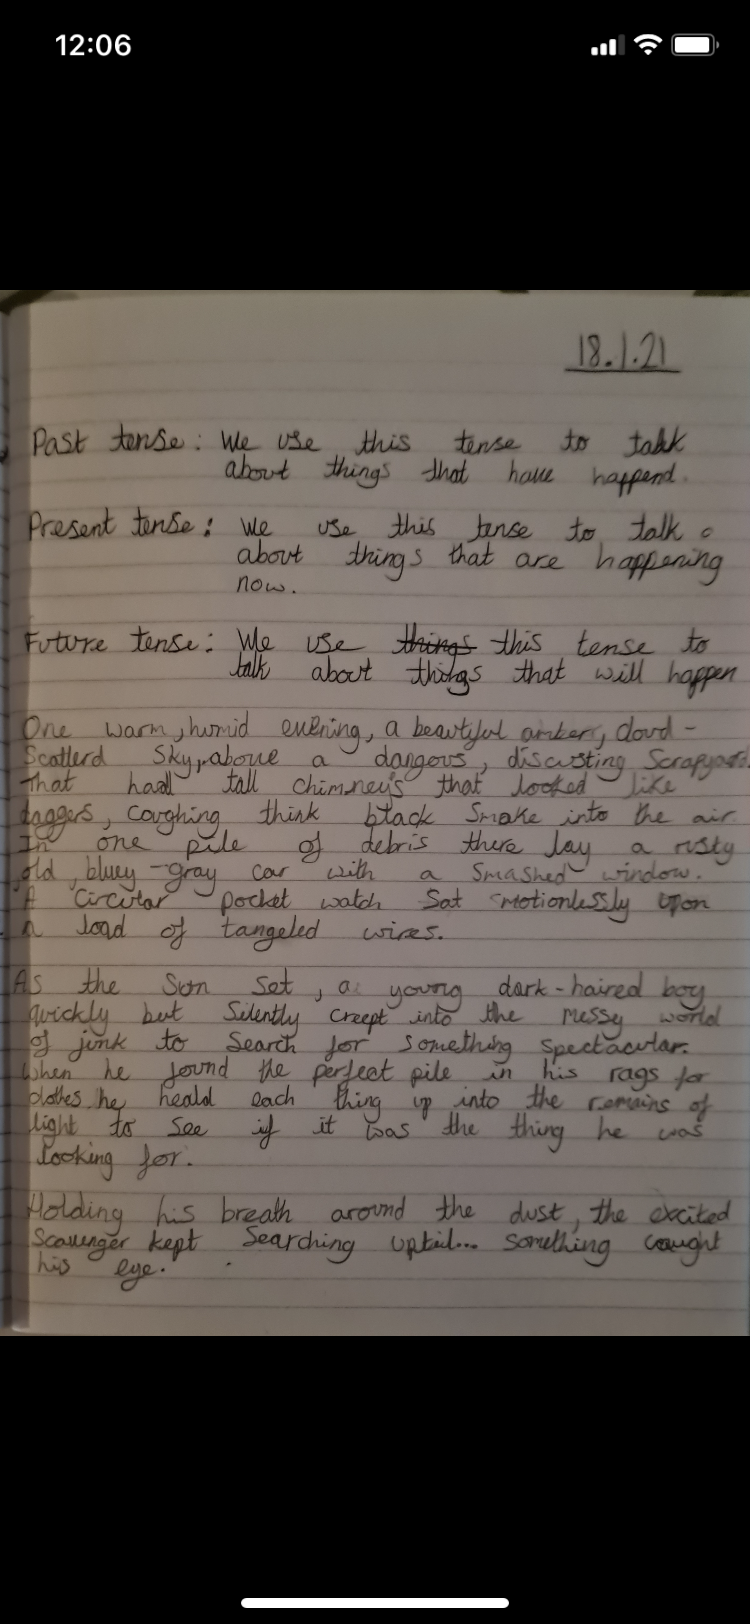 12:06
18.1.21
Past tense: We use this tense to talk
about things that have happend.
Present tense: We use this tense to talk
about things that are happening
now.
Future tense: We use things this tense to
talk about things that will happen
One warm, humid evening, a beautiful amber, cloud-
Scatterd Sky, above a dangous, discusting Scrapyard
that had tall chimney's that looked like
daggers, coughing think black Smoke into the air.
In one pile of debris there lay a rusty
old, bluey-gray car with a Smashed window.
A Circular pocket watch Sat motionlessly upon
a load of tangeled wires.
As the Sun Set, a young dark-haired boy
quickly but Silently creept into the messy world
of junk to Search for Something Spectacular.
When he found the perfect pile in his rags for
clothes he heald each thing up into the remains of
light to See if it was the thing he was
looking for.
Holding his breath around the dust, the excited
Scavenger kept Searching uptil... Something caught
his eye.